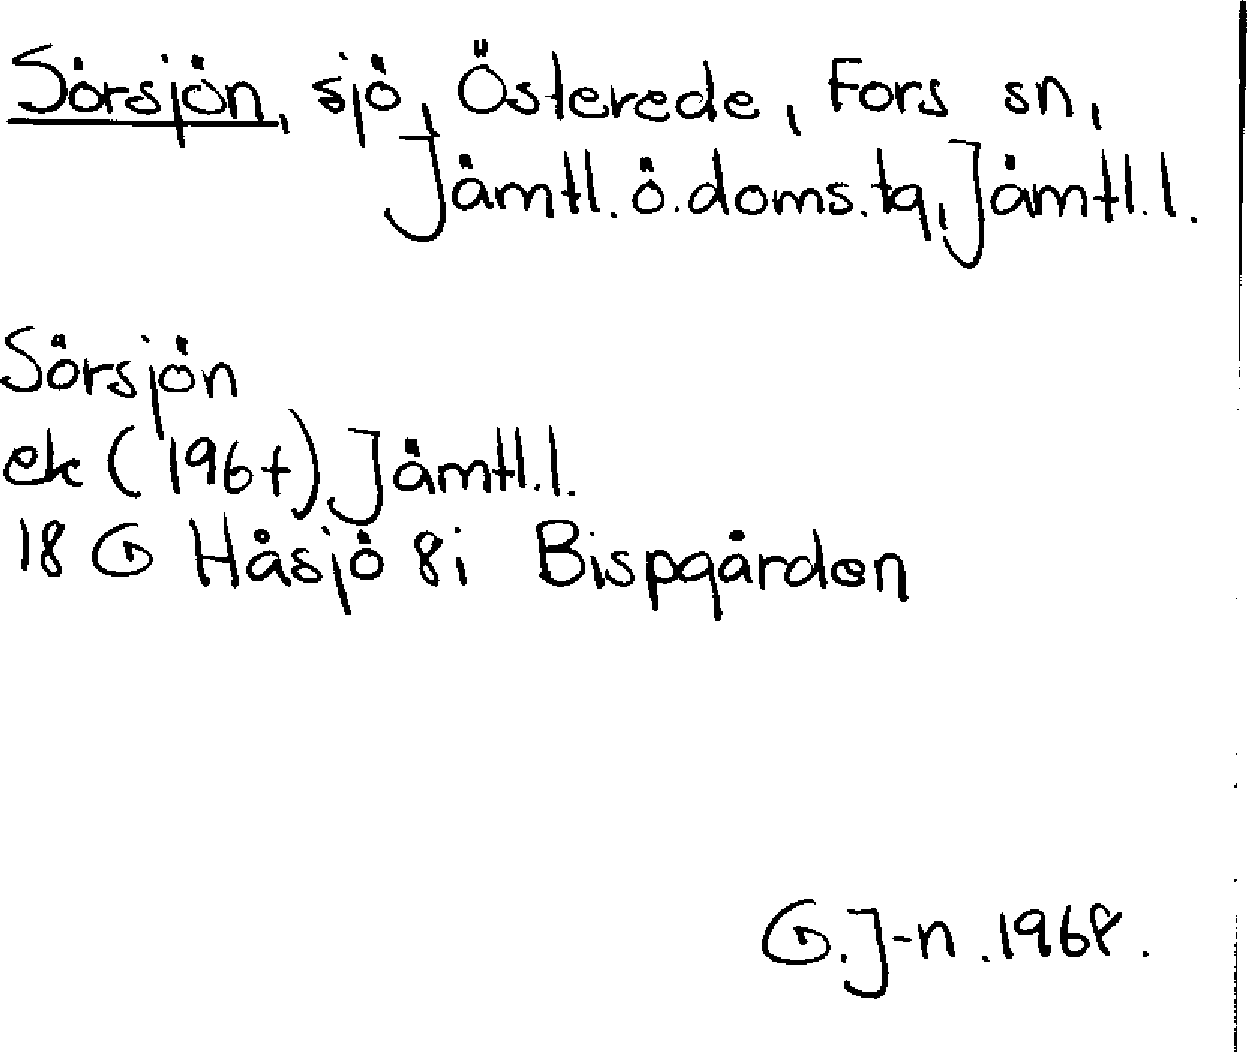 Sörsjön, sjö, Österede, Fors sn,
Jämtl. ö. doms. tg, Jämtl. l.
Sörsjön
ek (1967) Jämtl. l.
18 G Håsjö 8i Bispgården
G. J-n. 1968.